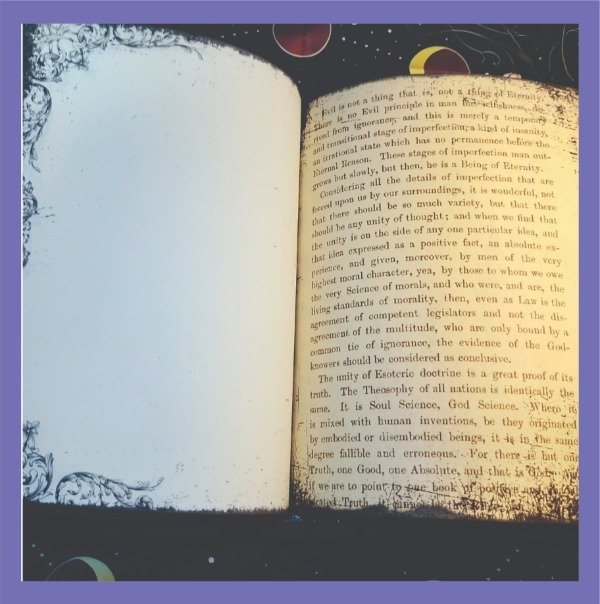 Evil is not a thing that is, not a thing of Eternity.
There is no Evil principle in man but selfishness, de-
rived from ignorance; and this is merely a temporary
and transitional stage of imperfection; a kind of insanity,
an irrational state which has no permanence before the
Eternal Reason. These stages of imperfection man out-
grows but slowly, but then, he is a Being of Eternity.
Considering all the details of imperfection that are
forced upon us by our surroundings, it is wonderful, not
that there should be so much variety, but that there
should be any unity of thought; and when we find that
the unity is on the side of any one particular idea, and
that idea expressed as a positive fact, an absolute ex-
perience, and given, moreover, by men of the very
highest moral character, yea, by those to whom we owe
the very Science of morals, and who were, and are, the
living standards of morality, then, even as Law is the
agreement of competent legislators and not the dis-
agreement of the multitude, who are only bound by a
common tie of ignorance, the evidence of the God-
knowers should be considered as conclusive.
The unity of Esoteric doctrine is a great proof of its
truth. The Theosophy of all nations is identically the
same. It is Soul Science, God Science. Where it
is mixed with human inventions, be they originated
by embodied or disembodied beings, it is in the same
degree fallible and erroneous. For there is but one
Truth, one Good, one Absolute, and that is God
if we are to point to one book of positive and
Truth, it